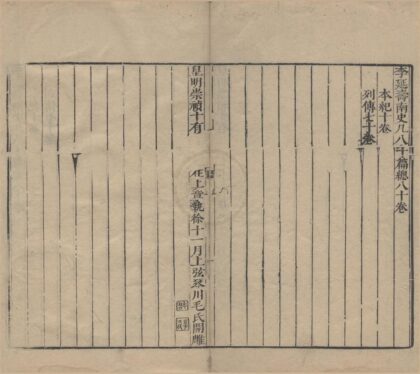 李延壽南史凡八十篇總八十卷
本紀十卷
列傳七十卷
皇明崇禎十有
在上章執徐十一月上弦琴川毛氏開雕